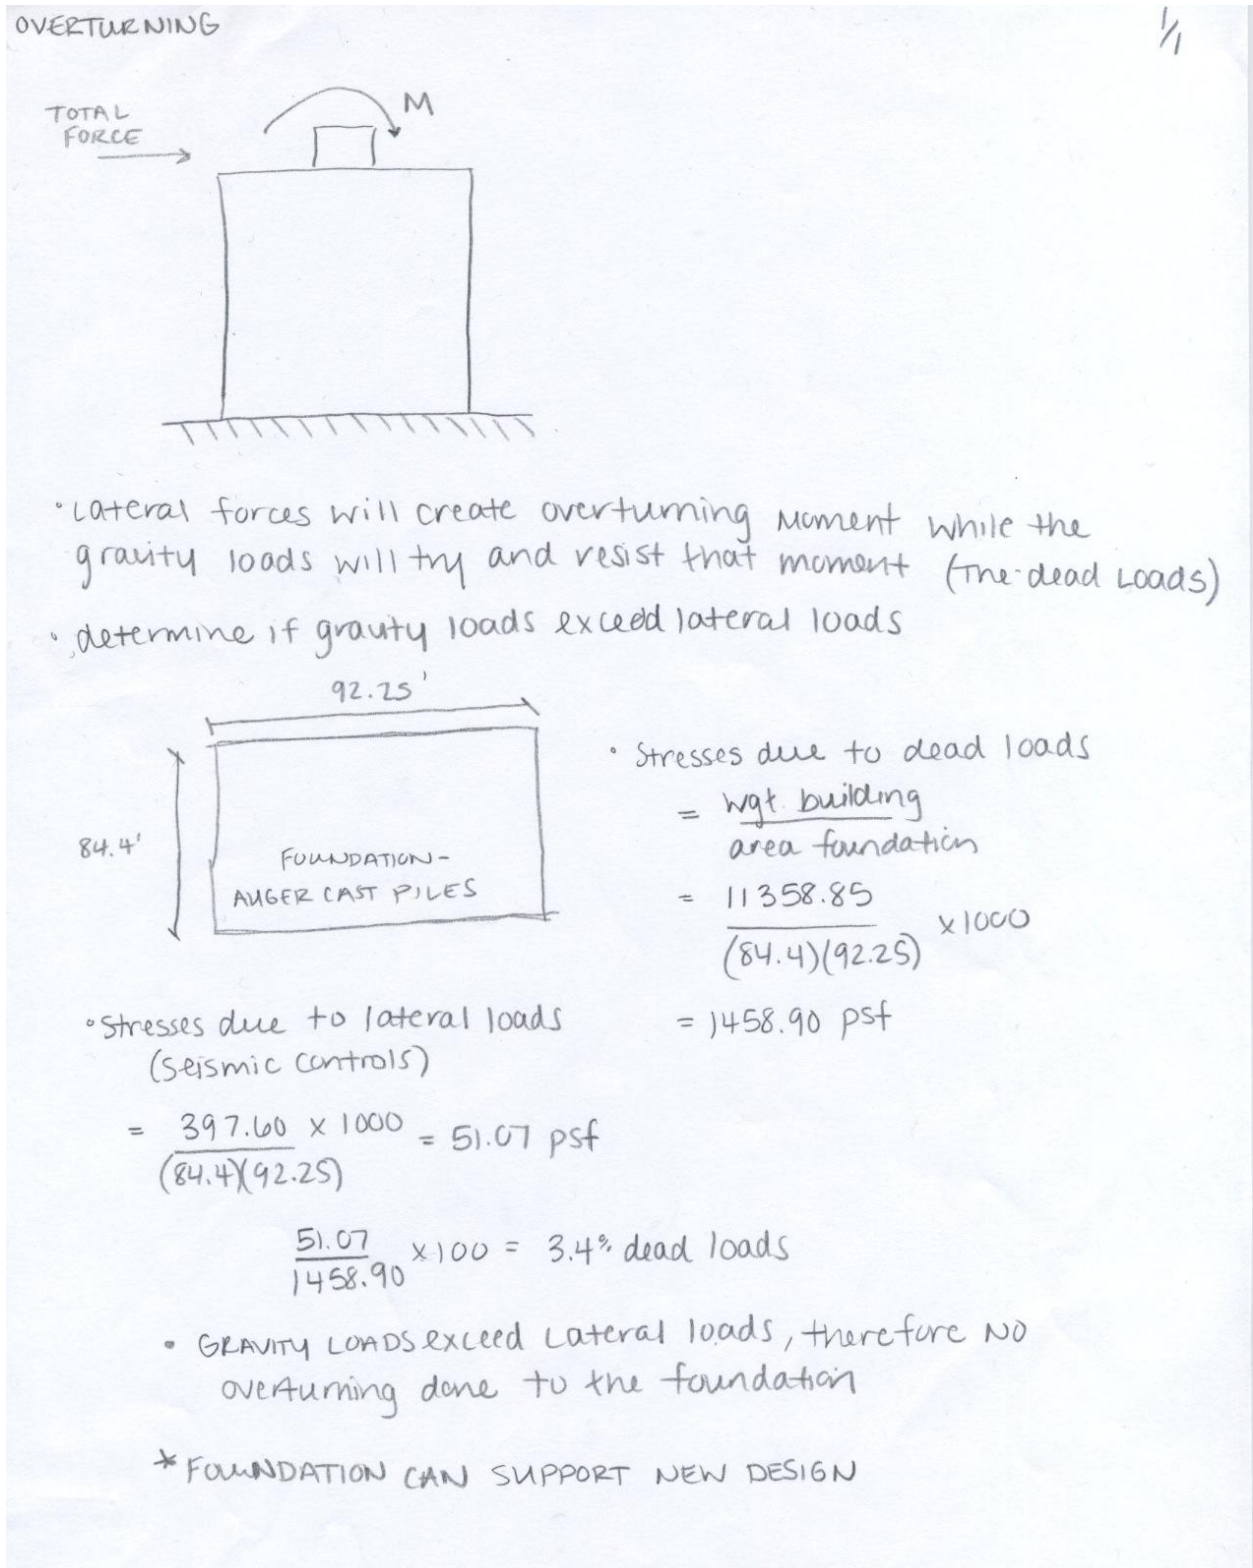 OVERTURNING
1/1
TOTAL
FORCE
M
• Lateral forces will create overturning moment while the
gravity loads will try and resist that moment (The dead Loads)
• determine if gravity loads exceed lateral loads
92.25'
84.4'
FOUNDATION-
AUGER CAST PILES
• Stresses due to dead loads
= wgt. building
area foundation
= 11358.85
(84.4)(92.25) x1000
= 1458.90 psf
• Stresses due to lateral loads
(seismic controls)
= 397.60 x 1000 = 51.07 psf
(84.4)(92.25)
51.07 x100 = 3.4% dead loads
1458.90
• GRAVITY LOADS exceed Lateral loads, therefore NO
overturning done to the foundation
* FOUNDATION CAN SUPPORT NEW DESIGN